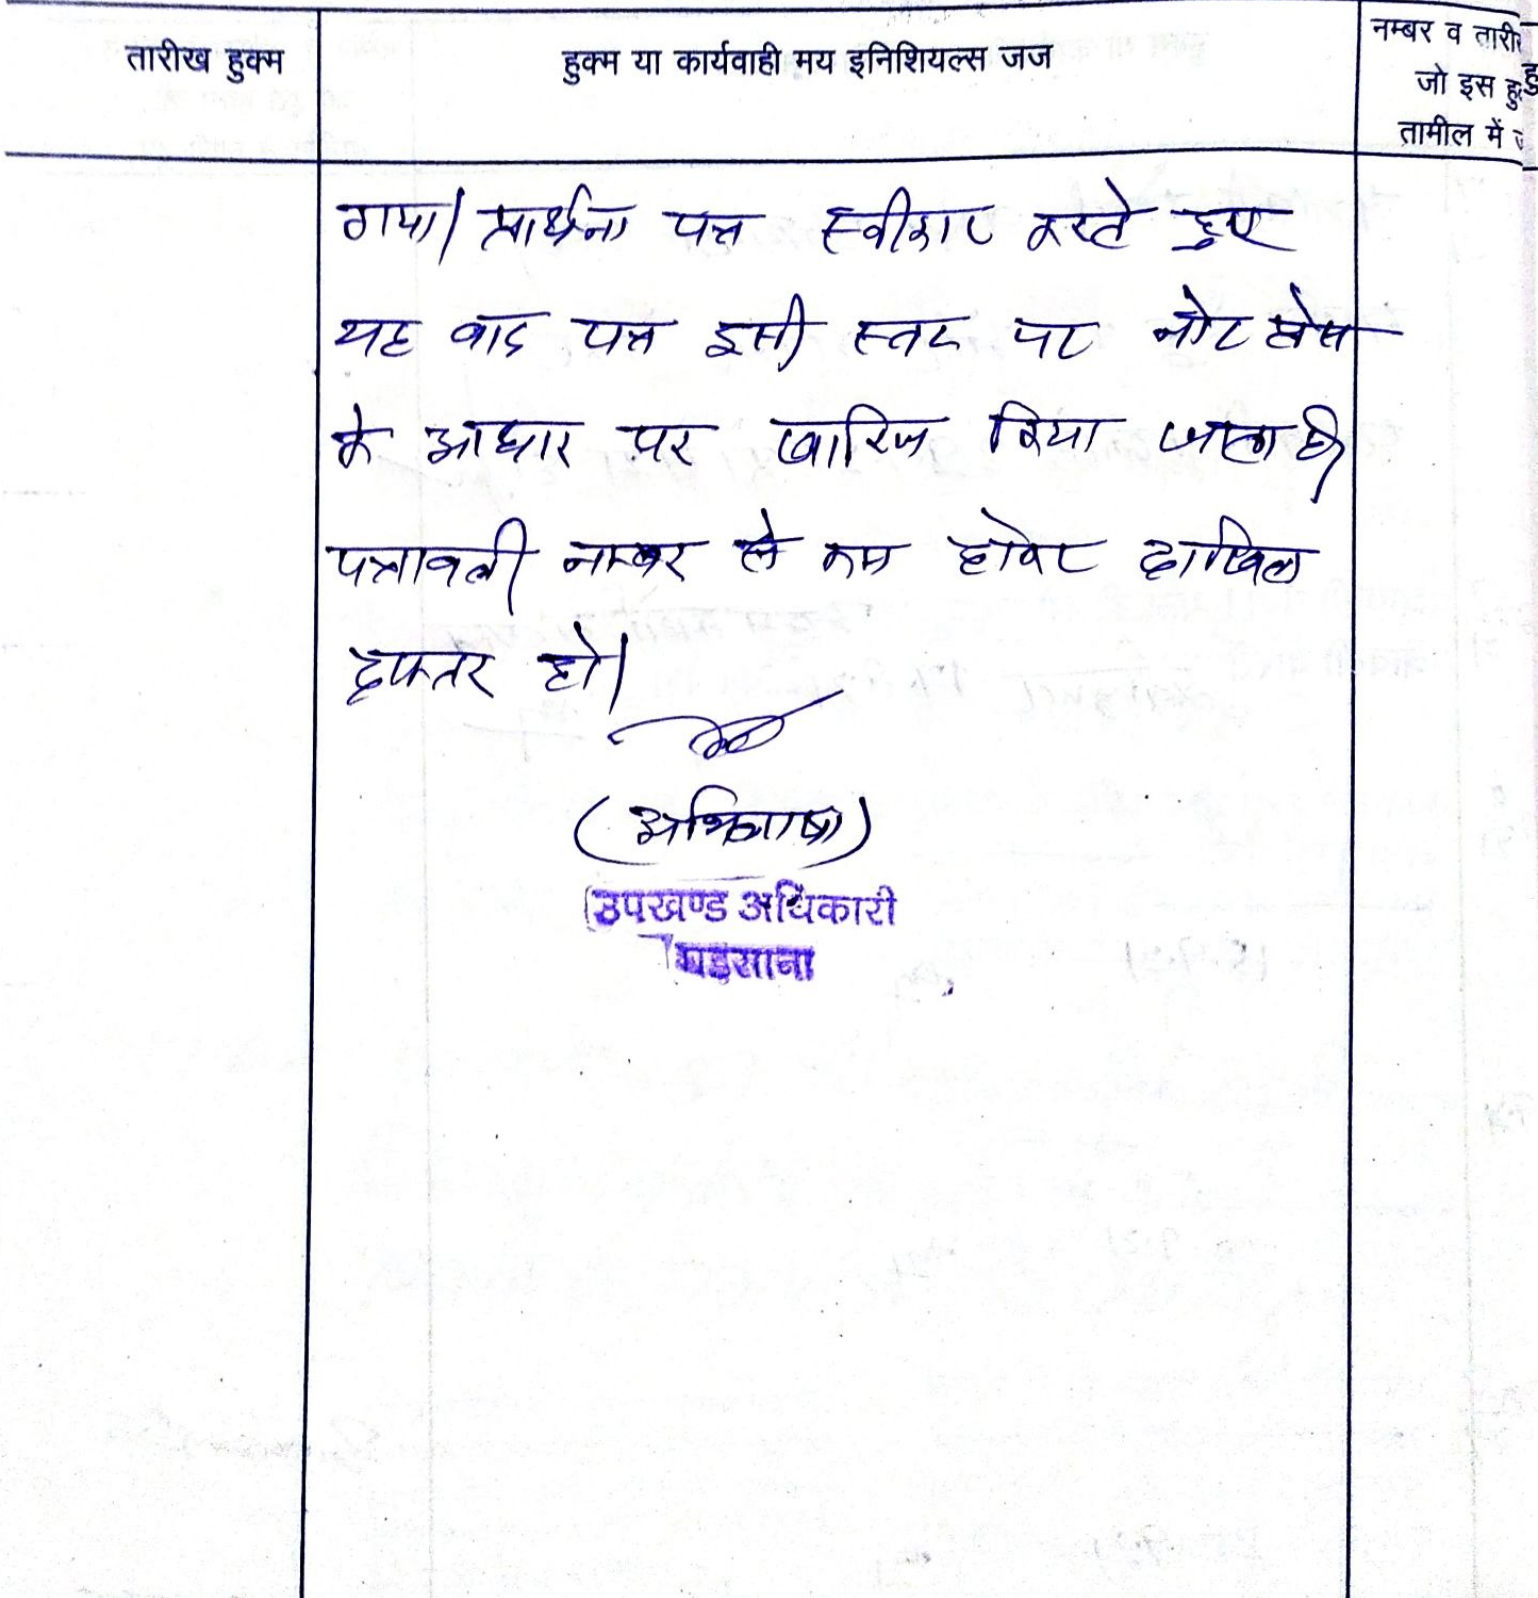 तारीख हुक्म
हुक्म या कार्यवाही मय इनिशियल्स जज
नम्बर व तारीख
जो इस हु
तामील में
गया। प्रार्थना पत्र स्वीकार करते हुए
यह वाद पत्र इसी स्तर पर नोट प्रेस
के आधार पर खारिज किया जाता है।
पत्रावली नम्बर से कम होकर दाखिल
दफ्तर हो।
उपखण्ड अधिकारी
घड़साना